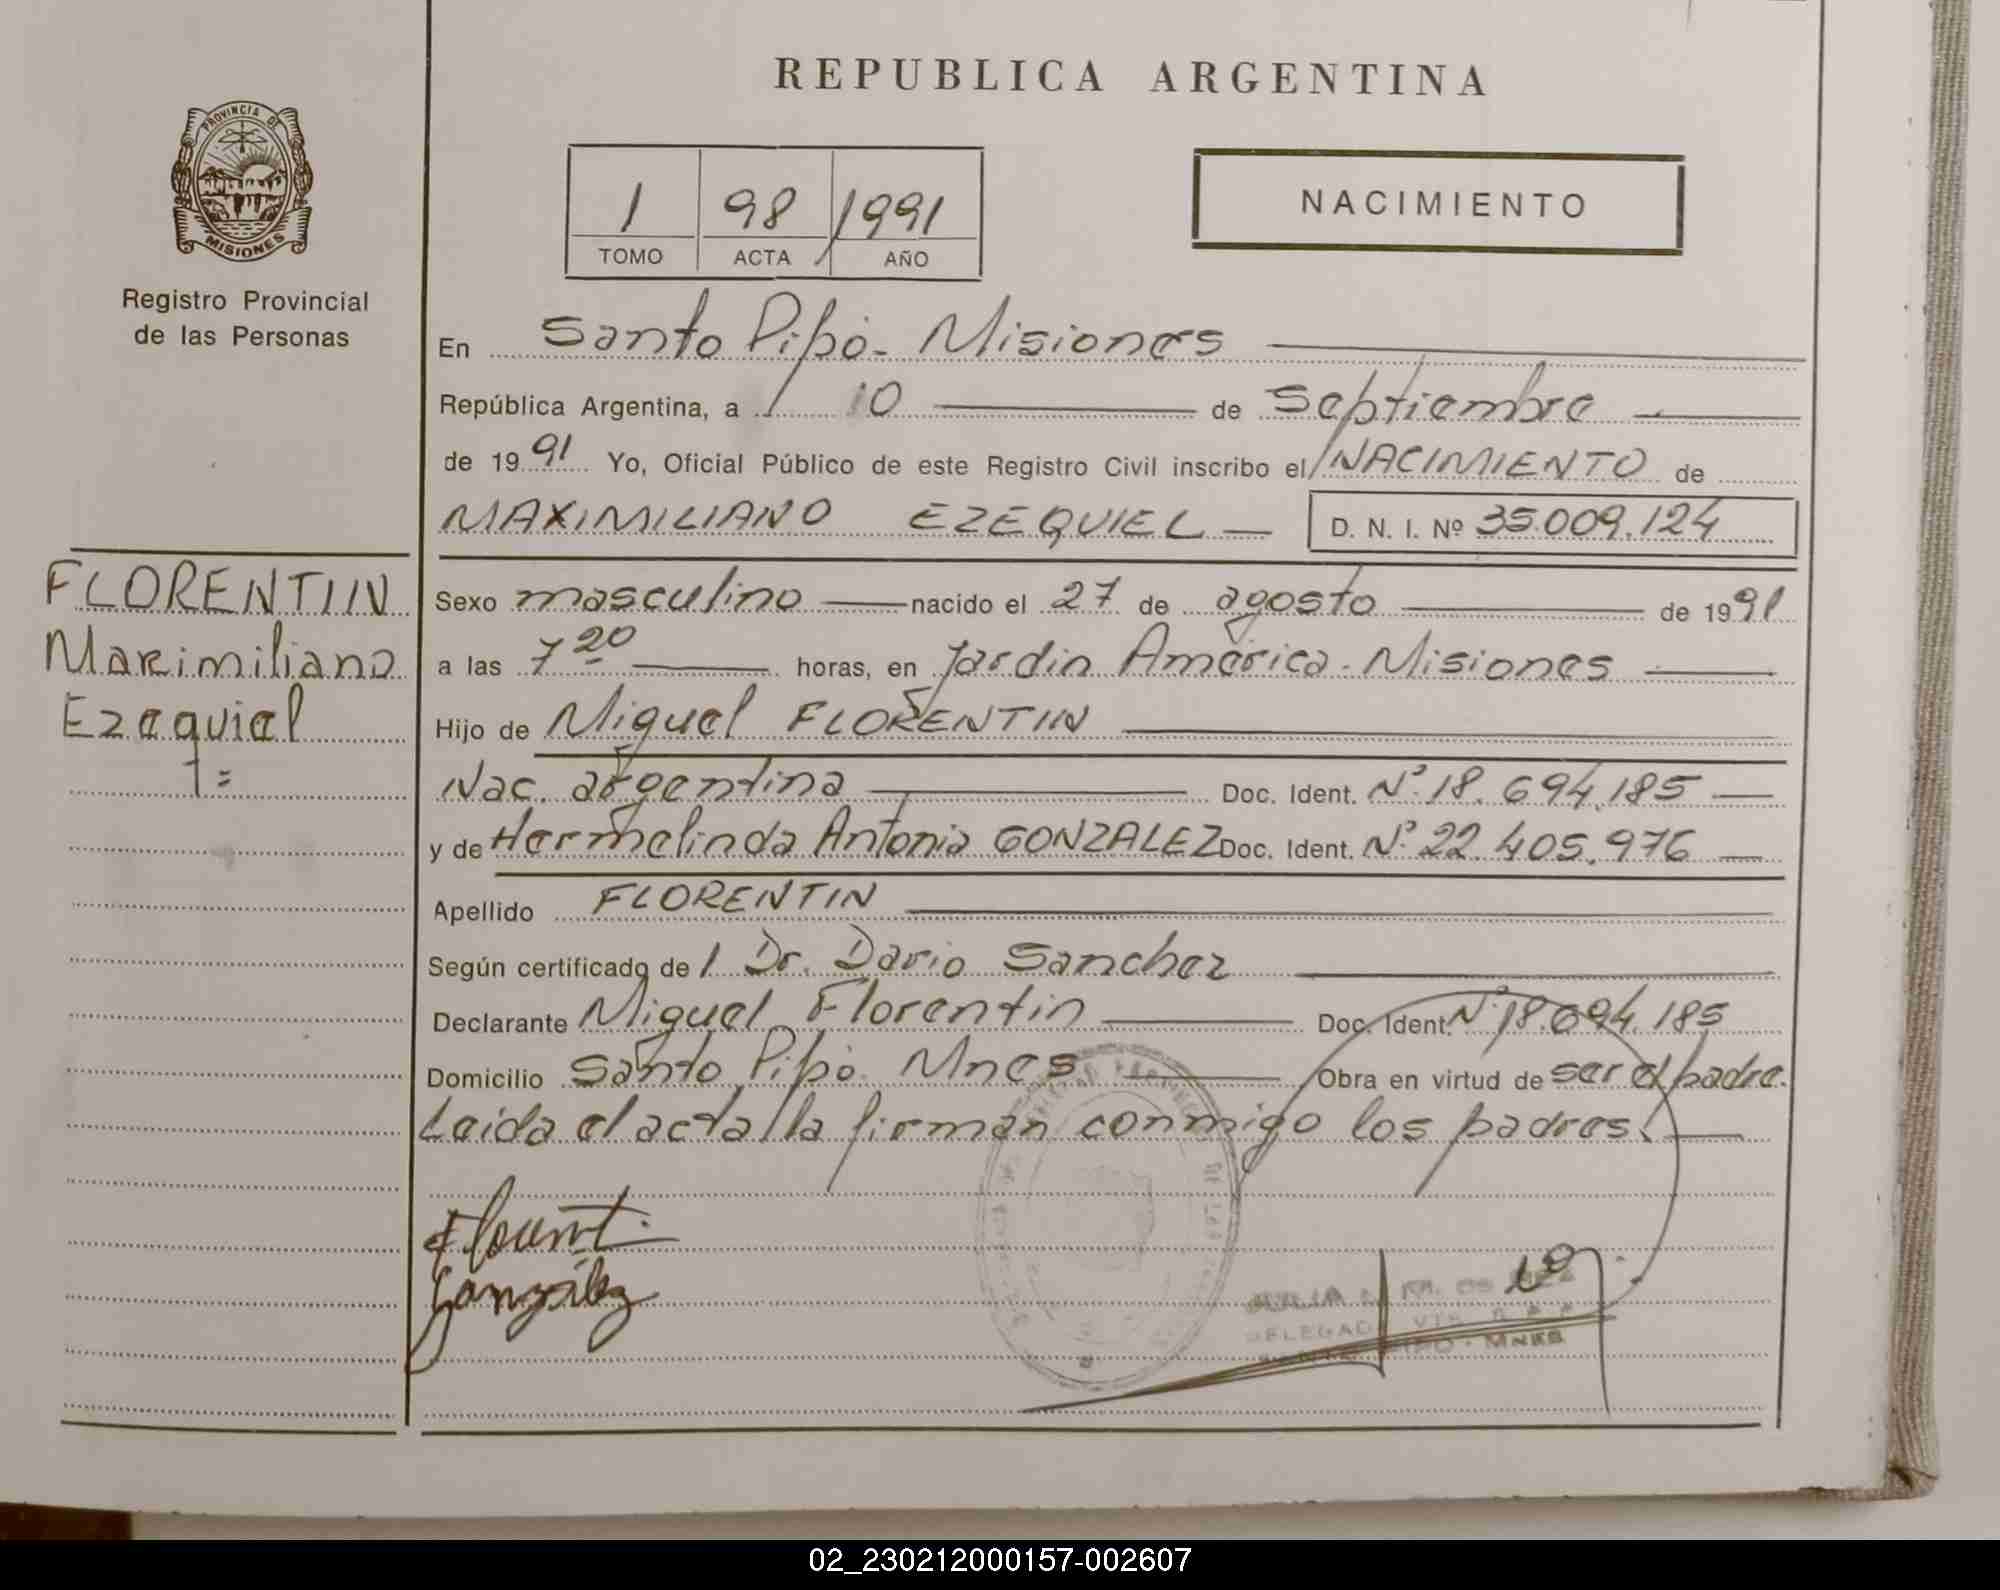 REPUBLICA ARGENTINA
PROVINCIA DE
MISIONES
Registro Provincial
de las Personas
1 98 1991
TOMO ACTA AÑO
NACIMIENTO
En Santo Pipó - Misiones
República Argentina, a 10 de Septiembre
de 1991 Yo, Oficial Público de este Registro Civil inscribo el NACIMIENTO de
MAXIMILIANO EZEQUIEL D. N. I. Nº 35.009.124
FLORENTIN
Maximiliano
Ezequiel
Sexo masculino nacido el 27 de agosto de 1991
a las 7 20 horas, en Jardin América - Misiones
Hijo de Miguel FLORENTIN
Nac. argentina Doc. Ident. Nº 18.694.185
y de Hermelinda Antonia GONZALEZ Doc. Ident. Nº 22.405.976
Apellido FLORENTIN
Según certificado de Dr. Dario Sanchez
Declarante Miguel Florentin Doc. Ident. Nº 18.694.185
Domicilio Santo Pipó Mnes Obra en virtud de ser el padre.
Leida el acta la firman conmigo los padres.
González
02_230212000157-002607